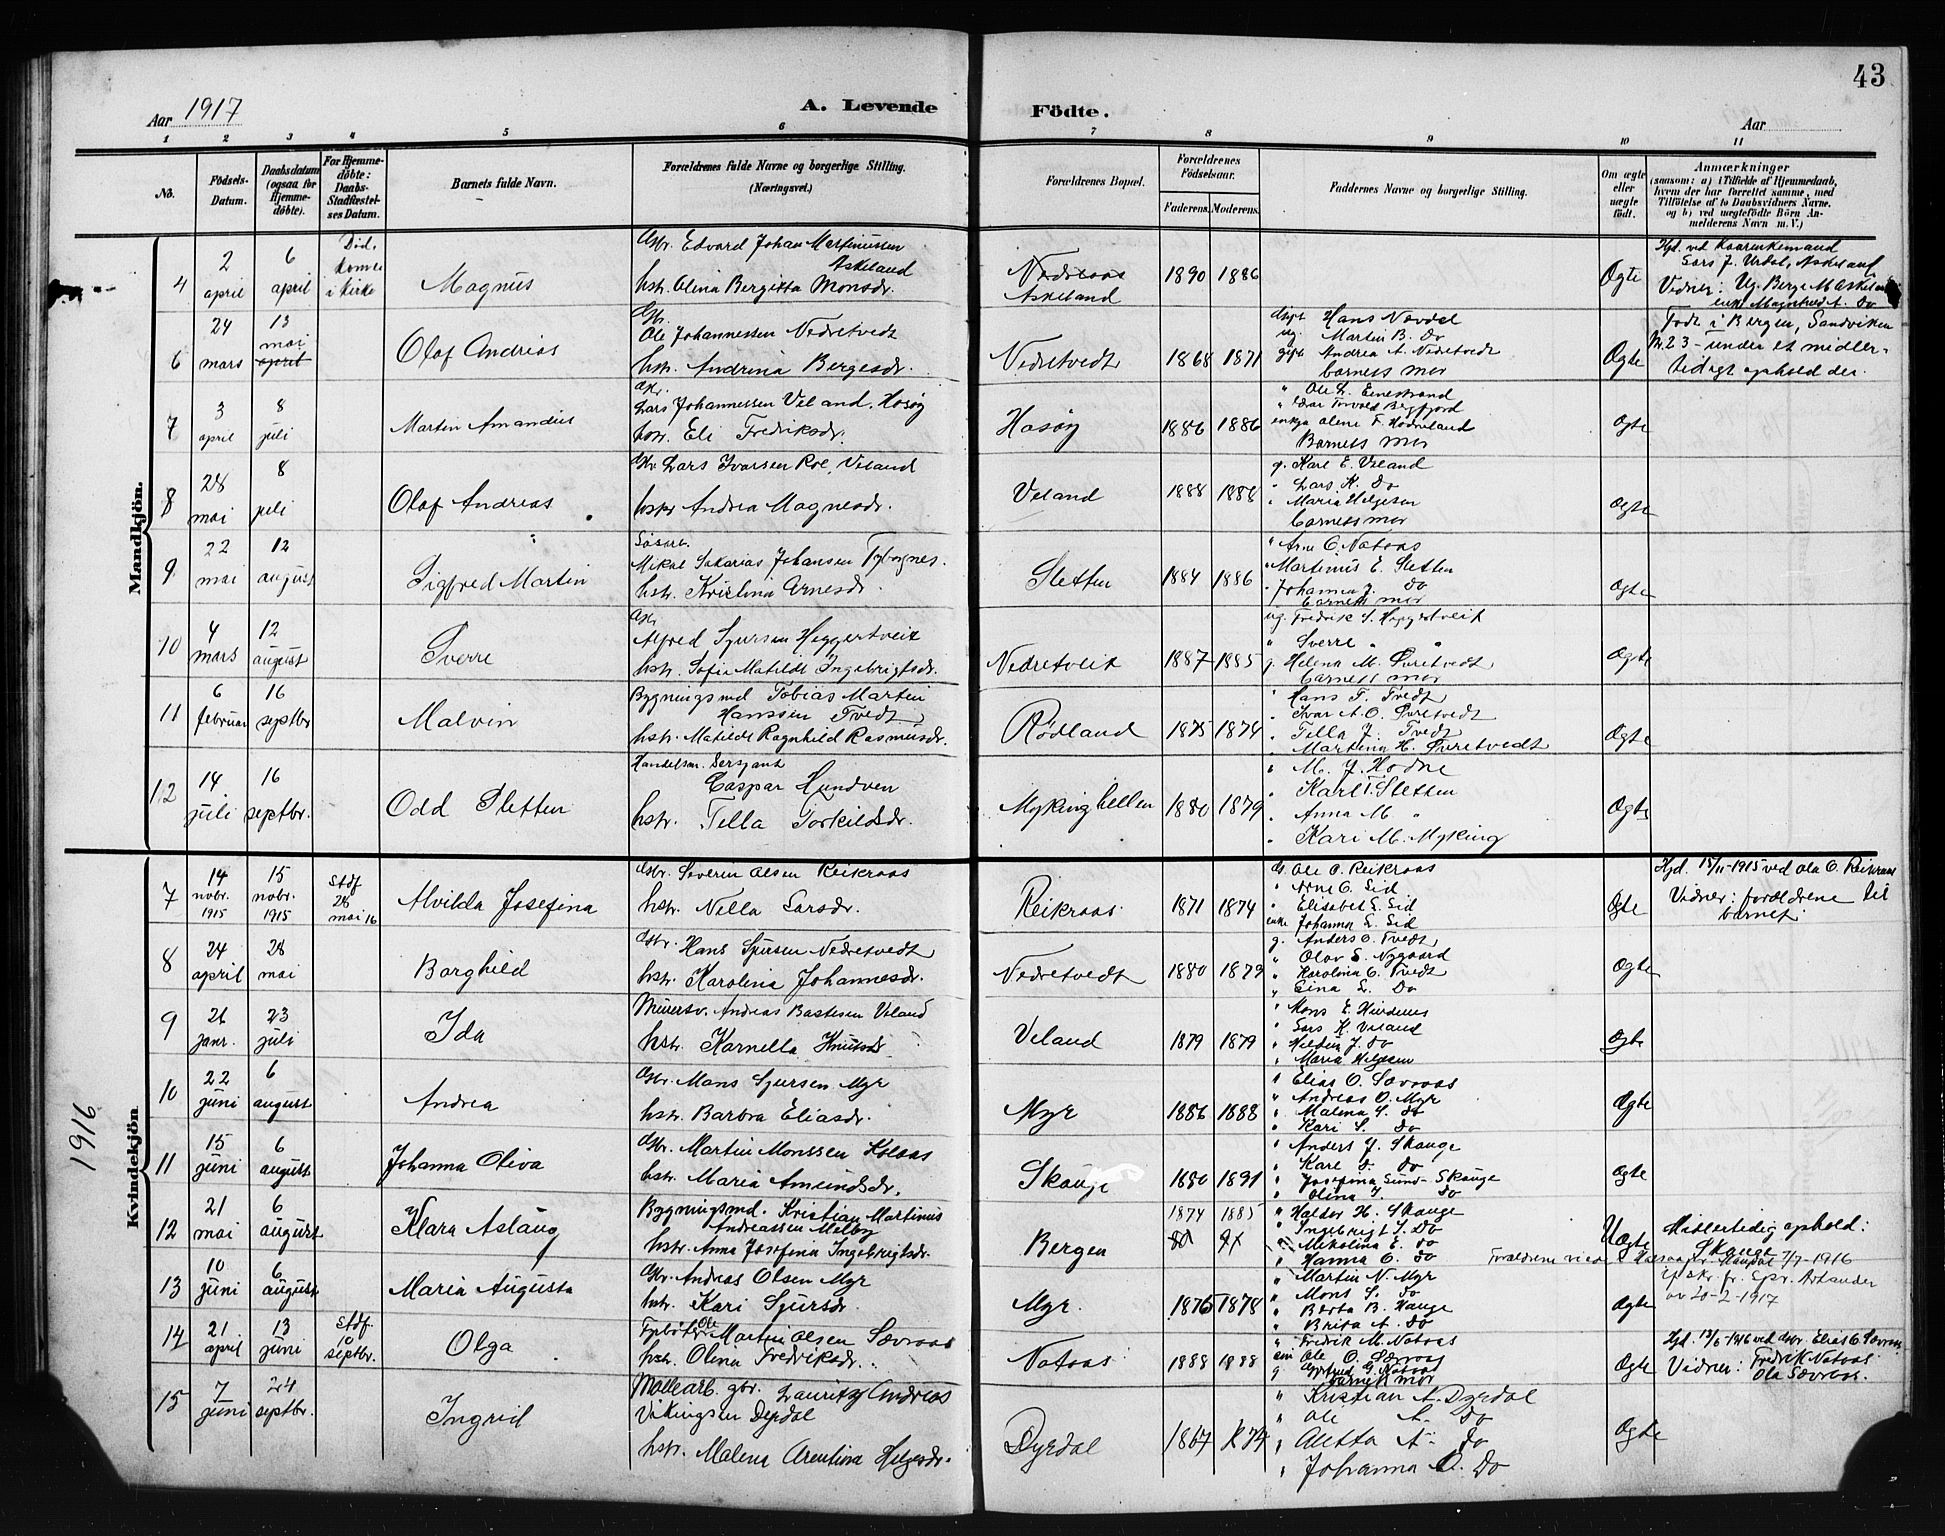 43
Aar 1917
A. Levende
Födte.
Aar
1 2 3 4 5 6 7 8 9 10 11
No.
Födsels-
Datum.
Daabsdatum
(ogsaa for
Hjemme-
döbte).
For Hjemme-
döbte:
Daabs-
Stadfæstel-
ses Datum.
Barnets fulde Navn.
Forældrenes fulde Navne og borgerlige Stilling.
(Næringsvei.)
Forældrenes Bopæl.
Forældrenes
Födselsaar.
Faderens. Moderens.
Faddernes Navne og borgerlige Stilling.
Om ægte
eller
uægte
födt.
Anmærkninger
(saasom: a) i Tilfælde af Hjemmedaab,
hvem der har forrettet samme, med
Tilföielse af to Daabsvidners Navne.
og b) ved uægtefödte Börn An-
melderens Navn m. V.)
Mandkjön.
4
2
april
6
april
i kirke
Magnus
Gbr. Edvard Johan Martinussen
Askeland
hstr. Olina Bergitta Monsdr.
Nedreaas
Askeland
1890 1886
Ægte
6
24
mars
13
mai
april
Olaf Andrias
Gbr.
Ole Johannessen Nedretvedt
hstr. Andrina Bergesdr.
Nedretvedt
1868 1871
Hans Nævdal
Martin B. Do
gift Andrea A. Nedretvedt
barnets mor
Ægte
Født i Bergen, Sandviken
Nr. 23 - under et midler-
tidigt ophold der.
7
3
april
8
juli
Martin Amandus
Gbr.
Lars Johannessen Veland, Hosøy
hstr. Eli Fredriksdr.
Hosøy
1886 1886
" Ole L. Einestrand
Barnets mor
Ægte
8
28
mai
8
juli
Olaf Andreas
Gbr. Lars Ivarsen Roe, Veland
hstr Andrea Magnesdr.
Veland
1888 1888
g. Karl E. Veland
" Lars K. Do
" Maria Helgesen
barnets mor
Ægte
9
22
mai
12
august
Sigfred Martin
Mikal Sakarias Johansen
hstr. Kristina Arnesdr.
Sletten
1884 1886
" Arne O. Nataas
" Martinus E. Sletten
Johanna J. Do
barnets mor
Ægte
10
4
mars
12
august
Sverre
Gbr.
Alfred Sjursen Heggertveit
hstr. Sofia Matilde Ingebrigtsdr.
Nedretveit
1887 1885
ug. Fredrik S. Heggertveit
" Sverre " "
g. Helena M. Øvretvedt
barnets mor
Ægte
11
6
februar
16
septbr
Malvin
Bygningsmd Tobias Martin
Hanssen Tvedt
hstr. Matilde Ragnhild Rasmusdr.
Rødland
1875 1874
" Hans T. Tvedt
" Ivar A. O. Øvretvedt
" Tella J. Tvedt
" Martina H. Øvretvedt
Ægte
12
14
juli
16
septbr.
Odd Sletten
Handelsm. Sersjant
Caspar Hundven
hstr. Tella Torkildsdr.
Mykinghellen
1880 1879
" M. J. Hodne
" Karl T. Sletten
" Anna M. "
" Kari M. Myking
Ægte
1916
Kvindekjön
7
14
nobr.
1915
15
nobr.
1915
Stdf
28
mai 16
Alvilda Josefina
Gbr. Severin Olsen Reikraas
hstr. Nella Larsdr.
Reikraas
1871 1874
g. Ole O. Reikraas
" Arne O. Eid
" Elisabet L. Eid
enke Johanna L. Eid
Ægte
Hjd. 15/11-1915 ved Ola O. Reikraas
Vidner: forældrene til
barnet.
8
24
april
28
mai
Borghild
Gbr. Hans Sjursen Nedretvedt
hstr. Karolina Johannesdr.
Nedretvedt
1880 1879
g. Anders O. Tvedt
" Olav S. Nygaard
" Karolina O. Tvedt
" Eina L. Do
Ægte
9
26
janr.
23
juli
Ida
Murersv. Andreas Bastesen Veland
hstr. Karnella Knutsdr
Veland
1879 1879
" Mons E. Hindenes
" Lars K. Veland
" Maria Helgesen
Ægte
10
22
juni
6
august
Andrea
Gbr. Mons Sjursen Myr
hstr. Barbra Eliasdr.
Myr
1886 1888
" Elias O. Sævraas
" Andreas O. Myr
" Malena S. Do
" Kari S. Do
Ægte
11
15
juni
6
august
Johanna Oliva
Gbr. Martin Monssen Kolaas
hstr. Maria Amundsdr.
Skauge
1880 1891
" Anders J. Skauge
" Kare A. Do
" Josefina Sund- Skauge
" Olina J. Do
Ægte
12
21
mai
6
august
Klara Aslaug
Bygningsmd. Kristian Martinus
Andreassen Melby
hstr. Anna Josefina Ingebrigtsdr.
Bergen
1874 1885
" Haldor H. Skauge
" Ingebrigt J. Do
" Mikolina E. Do
" Hanna O. Do
Uægte
Midlertidig ophold:
Skauge
Forældrene viet i 7/7-1916
20-2-1917
13
10
juni
6
august
Maria Augusta
Gbr. Andreas Olsen Myr
hstr. Kari Sjursdr.
Myr.
1876 1878
" Martin N. Myr
" Mons S. Do
" Berta B. Hauge
" Brita A. Do
Ægte
14
21
april
13
juni
Stdf.
10
septbr.
Olga
Ole
Martin Olsen Sævraas
hstr. Olina Fredriksdr.
Nataas
1888 1888
" Fredrik M. Nataas
Ole O. Sævraas
g Gjertrud G. Nataas
barnets mor
Ægte
Hjd. 13/6-1916 ved gbr. Elias O Sævraas
Vidner: Fredrik Nataas
Ola Sævraas.
15
7
juni
24
septbr.
Ingrid
Møllearb. gbr. Lauritz Andreas
Vikingsen Dyrdal
hstr. Malena Arentina Helgesdr.
Dyrdal
1867 1874
" Kristian A. Dyrdal
" Ole A. Do
" Aletta A. Do
" Johanna O. Do
Ægte